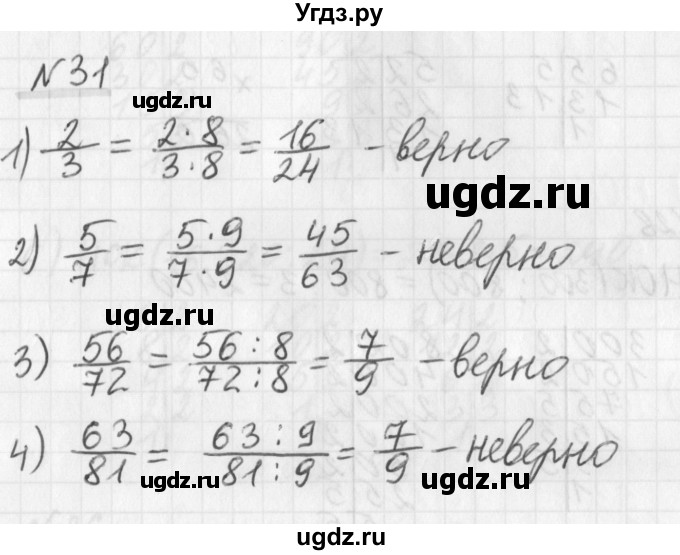 Угдз.ру
№31
ugdz.ru
ugdz.ru
1) 2/3 = 2·8/3·8 = 16/24 - верно
ugdz.ru
2) 5/7 = 5·9/7·9 = 45/63 - неверно
ugdz.ru
ugdz.ru
3) 56/72 = 56:8/72:8 = 7/9 - верно
4) 63/81 = 63:9/81:9 = 7/9 - неверно
ugdz.ru
ugdz.ru
ugdz.ru